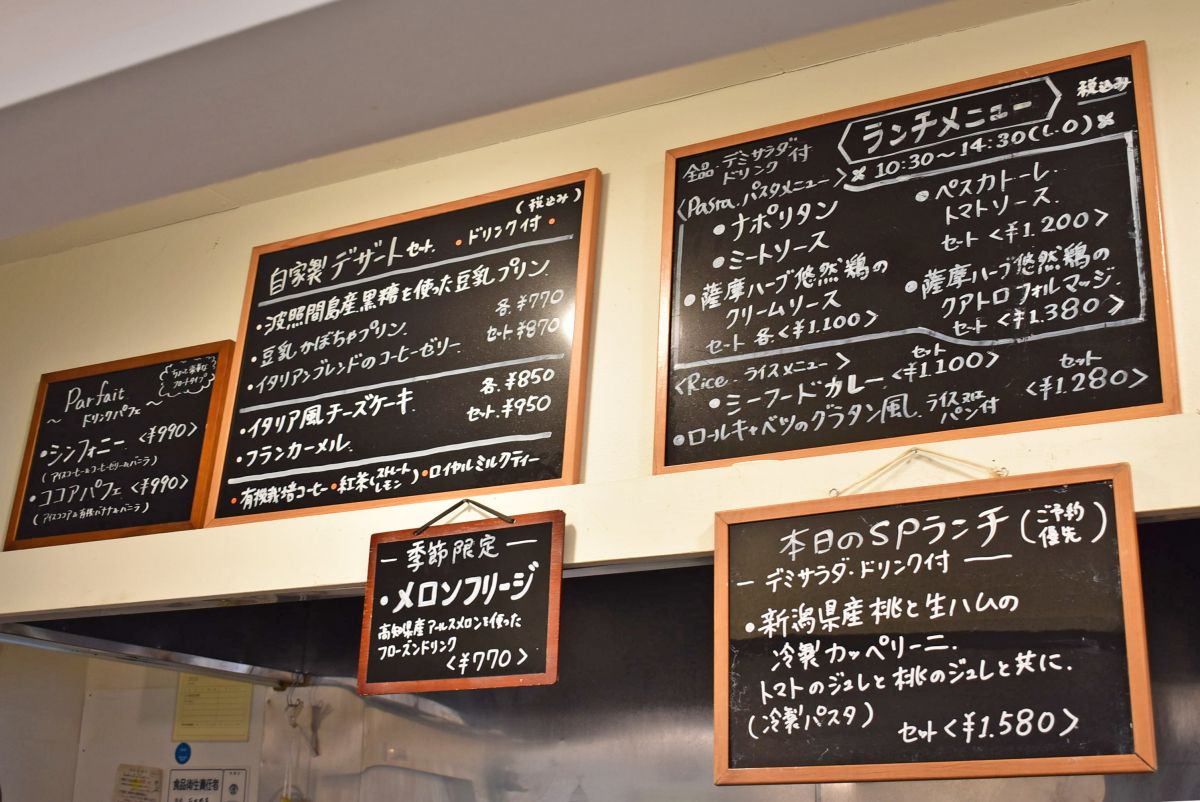 Parfait
〜ドリンクパフェ〜
フロートタイプ
・シンフォニー <¥990>
(アイスコーヒー&コーヒーゼリー&バニラ)
・ココアパフェ <¥990>
(アイスココア&有機バナナ&バニラ)
(税込み)
自家製デザートセット. ・ドリンク付・
・波照間島産黒糖を使った豆乳プリン
・豆乳かぼちゃプリン. 各.¥770
・イタリアンブレンドのコーヒーゼリー. セット.¥870
・イタリア風チーズケーキ 各.¥850
・フランカーメル. セット.¥950
・有機栽培コーヒー・紅茶(ストレート レモン)・ロイヤルミルクティー
ー季節限定ー
・メロンフリージ
高知県産アールスメロンを使った
フローズンドリンク
<¥770>
ランチメニュー 税込み
全品.デミサラダ・ドリンク付
※10:30〜14:30(L.O)※
<Pasta.パスタメニュー>
・ナポリタン
・ミートソース
・薩摩ハーブ悠然鶏の
クリームソース
セット 各.<¥1.100>
・ペスカトーレ.
トマトソース.
セット <¥1.200>
・薩摩ハーブ悠然鶏の
クアトロフォルマッジ.
セット <¥1.380>
<Rice.ライスメニュー>
・シーフードカレー. セット <¥1.100>
・ロールキャベツのグラタン風. ライス又はパン付 セット <¥1.280>
本日のSPランチ(ご予約優先)
ー デミサラダ・ドリンク付 ー
・新潟県産桃と生ハムの
冷製カッペリーニ.
トマトのジュレと桃のジュレと共に.
(冷製パスタ)
セット <¥1.580>
食品衛生責任者